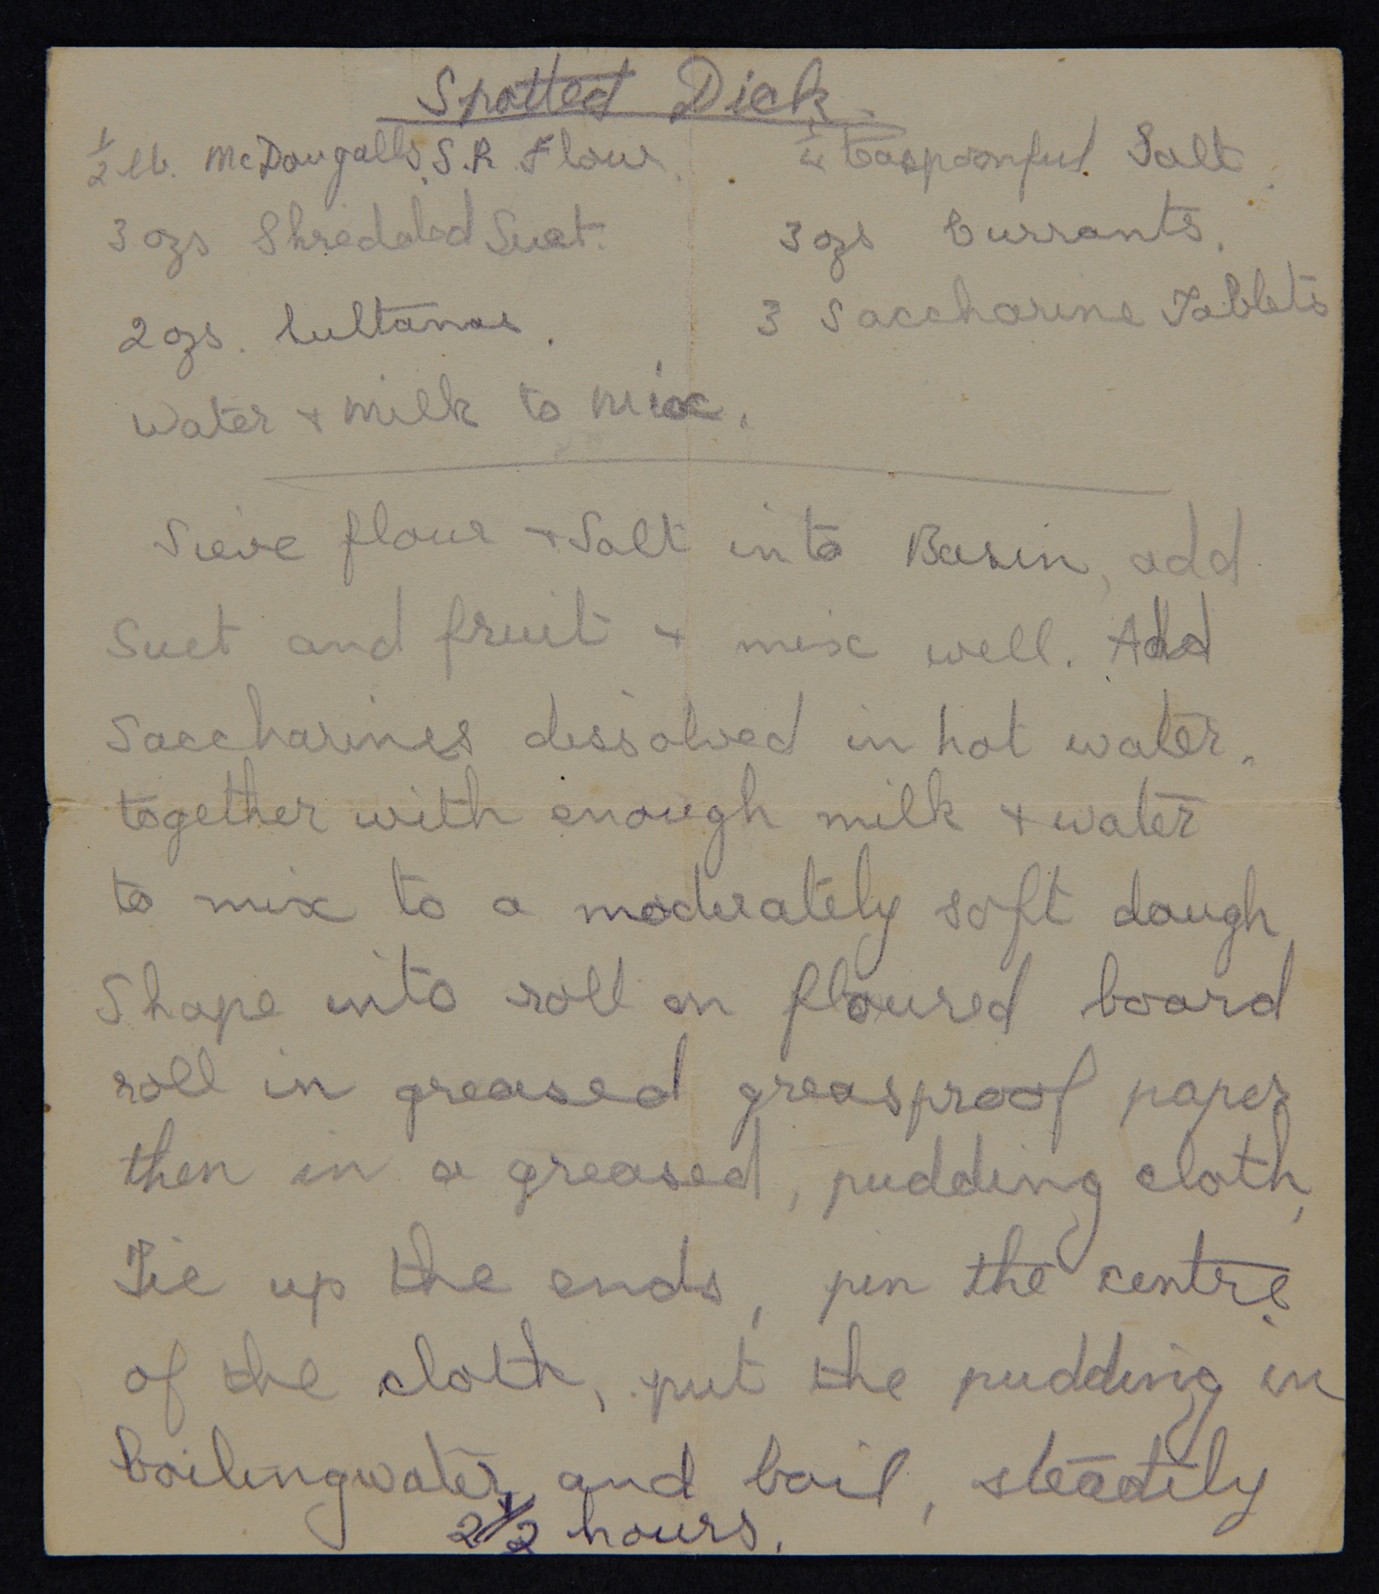 Spotted Dick.
½ lb. McDougalls S.R Flour. ¼ teaspoonful Salt.
3 ozs Shredded Suet. 3 ozs Currants.
2 ozs. Sultanas. 3 Saccharine Tablets
Water + Milk to Mix.
Sieve flour + Salt into Basin, add
Suet and fruit + mix well. Add
Saccharines dissolved in hot water,
together with enough milk + water
to mix to a moderately soft dough
Shape into roll on floured board
roll in greased greasproof paper
then in a greased, pudding cloth,
Tie up the ends, pin the centre
of the cloth, put the pudding in
boilingwater and boil, steadily
2½ hours.